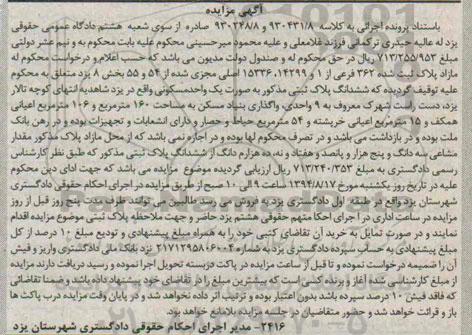 آگهی مزایده
باستناد پرونده اجرائی به کلاسه ۹۳۰۴۳۱/۸ و ۹۳۰۲۴۸/۸ صادره از سوی شعبه هشتم دادگاه عمومی حقوقی
یزد له عالیه حیدری ترکمانی فرزند غلامعلی و علیه محمود میرحسینی محکوم علیه بابت محکوم به و نیم عشر دولتی
مبلغ ۷۱۳/۲۵۵/۹۵۳ ریال در حق محکوم له و صندوق دولت مدیون می باشد که حسب اعلام و درخواست محکوم له
مازاد پلاک ثبت شده ۳۶۲ فرعی از ۱ و ۱۵۳۳۶،۱۴۲۹۹ اصلی مجزی شده از ۵۴ و ۵۵ بخش ۸ یزد متعلق به محکوم
علیه توقیف گردیده که ششدانگ پلاک ثبتی مذکور به صورت یک واحدمسکونی واقع در یزد شاهدیه انتهای کوچه تالار
یزد، دست راست شهرک معروف به ۹ واحدی، واگذاری بنیاد مسکن به مساحت ۱۶۰ مترمربع و ۱۰۶ مترمربع اعیانی
همکف و ۱۵ مترمربع اعیانی خرپشته و ۵۴ مترمربع حیاط و حصار و دارای انشعابات و تجهیزات بوده و در رهن بانک
ملت بوده و در بازداشت می باشد و در تصرف محکوم لها بوده و در اجاره نمی باشد که از محل مازاد پلاک مذکور مقدار
مشاعی سه دانگ و پنج هزار و پانصد و هفتاد و نه، ده هزارم دانگ از ششدانگ پلاک ثبتی مذکور که طبق نظر کارشناس
رسمی دادگستری به مبلغ ۷۱۳/۲۴۰/۳۵۳ ریال ارزیابی گردیده موضوع مزایده می باشد که جهت ادای دین محکوم
علیه در تاریخ روز یکشنبه مورخ ۱۳۹۴/۸/۱۷ ساعت ۹ الی ۱۰ صبح از طریق مزایده در اجرای احکام حقوقی دادگستری
شهرستان یزد واقع در طبقه اول دادگستری یزد به فروش می رسد طالبین می توانند ظرف مدت پنج روز قبل از روز
مزایده در ساعت اداری در اجرای احکام حقوقی هشتم یزد حاضر و جهت ملاحظه پلاک ثبتی موضوع مزایده اقدام
نمایند و در صورت تمایل به خرید آن تقاضای کتبی خود را به همراه مبلغ پیشنهادی و تودیع مبلغ ۱۰ درصد از کل
مبلغ پیشنهادی به حساب سپرده دادگستری یزد به شماره ۲۱۷۱۲۹۵۸۰۶۰۰۴ نزد بانک ملی دادگستری واریز و فیش
آن را ضمیمه درخواست نموده و تا قبل از ساعت مزایده در پاکت دربسته تحویل اجرا نموده و رسید دریافت دارند مزایده
از مبلغ کارشناسی شده آغاز و برنده کسی است که بیشترین مبلغ را در تقاضای خود پیشنهاد داده باشد، ضمنا تقاضائی
که فاقد فیش ۱۰ درصد سپرده باشد بدون اعتبار بوده و ترتیب اثر داده نخواهد شد و در پایان وقت مزایده درب پاکت ها
باز و قرائت خواهد شد و حضور متقاضیان در جلسه مزایده بلامانع خواهد بود.
۲۴۱۶ - مدیر اجرای احکام حقوقی دادگستری شهرستان یزد